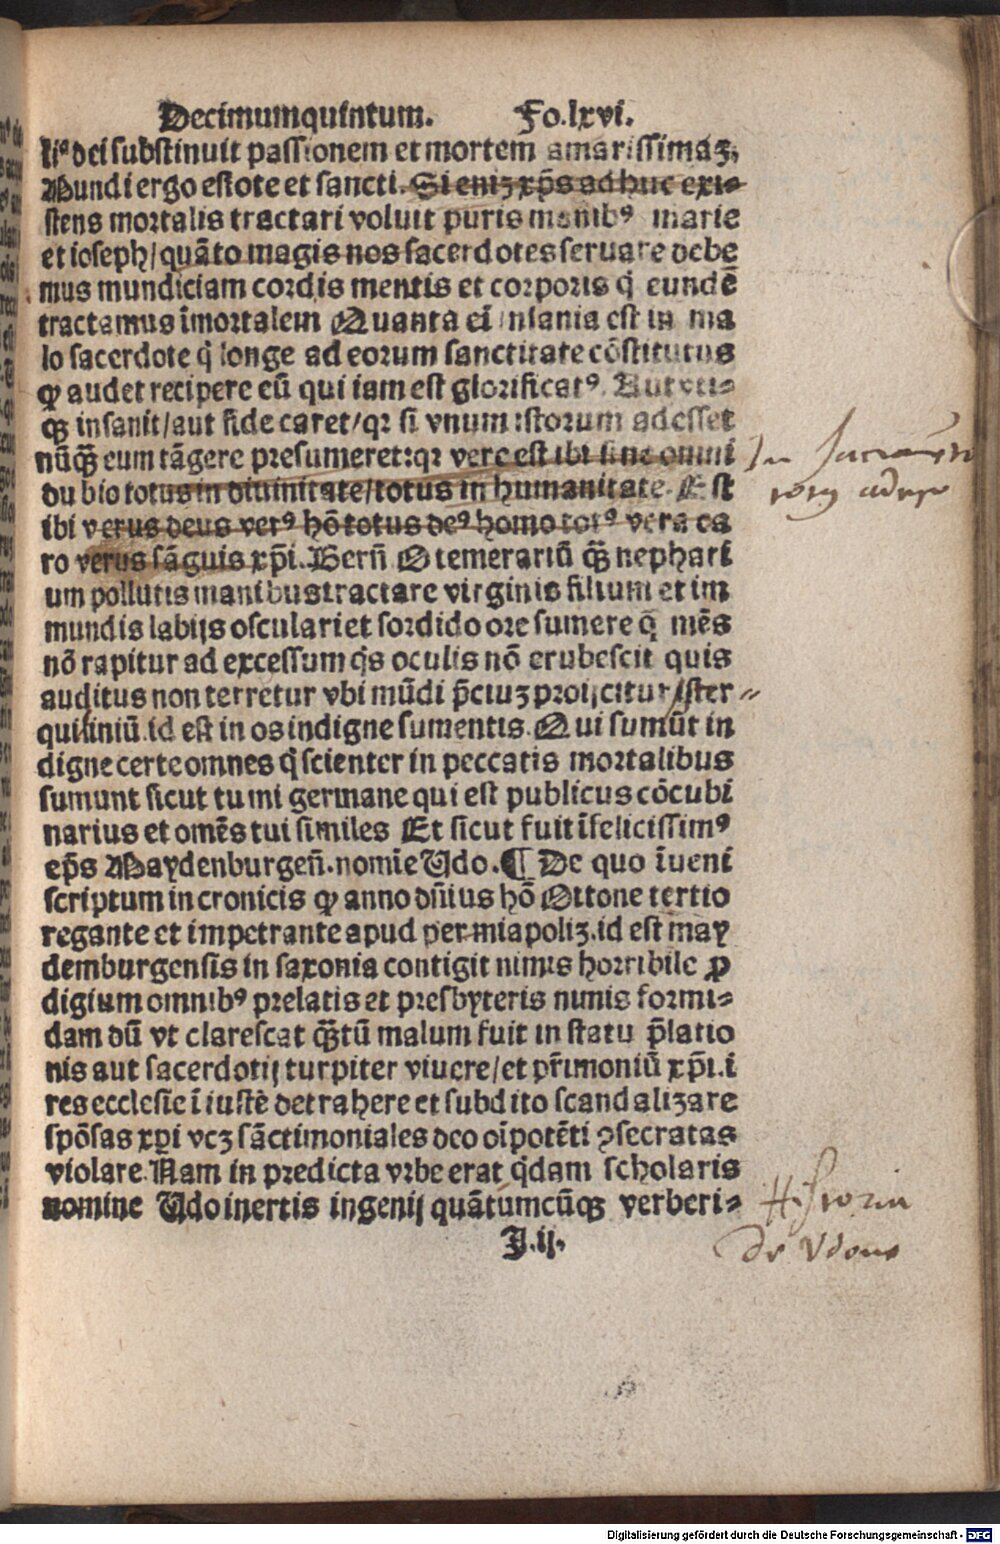 Decimumquintum. Fo.lxvi.
liꝰ dei substinuit passionem et mortem amarissimaꝫ,
Mundi ergo estote et sancti. Si eniꝫ xp̄s ad huc exi⸗
stens mortalis tractari voluit puris manibꝰ marie
et ioseph/quāto magis nos sacerdotes seruare debe
mus mundiciam cordis mentis et corporis q̇ eundē
tractamus īmortalem Quanta eī insania est in ma
lo sacerdote q̇ longe ad eorum sanctitate cōstitutus
ꝙ audet recipere eū qui iam est glorificatꝰ. Aut vti⸗
qꝫ insanit/aut fide caret/qꝛ si vnum istorum adesset
nūqꝫ̄ eum tāgere presumeret:qꝛ vere est ibi sine omni
du bio totus in diuinitate/totus in humanitate. Est
ibi verus deus verꝰ hō totus deꝰ homo totꝰ vera ca
ro verus sāguis xp̄i. Bern̄ O temerariū qꝫ̄ nephari
um pollutis manibus tractare virginis filium et im
mundis labijs osculari et sordido ore sumere q̄ mēs
nō rapitur ad excessum q̇s oculis nō erubescit quis
auditus non terretur vbi mūdi p̄ciuꝫ proijcitur ī ster⸗
quiliniū.id est in os indigne sumentis. Qui sumūt in
digne certe omnes q̇ scienter in peccatis mortalibus
sumunt sicut tu mi germane qui est publicus cōcubi
narius et omēs tui similes Et sicut fuit īfelicissimꝰ
ep̄s Maydenburgen̄.nomīe Udo.¶ De quo īueni
scriptum in cronicis ꝙ anno dn̄i us hō Ottone tertio
regante et impetrante apud permiapoliꝫ.id est may
demburgensis in saxonia contigit nimis horribile ꝓ
digium omnibꝰ prelatis et presbyteris nimis formi⸗
dam dū vt clarescat qꝫ̄tū malum fuit in statu p̄latio
nis aut sacerdotij turpiter viuere/et pr̄imoniū xp̄i.i
res ecclesie ī iustē detrahere et subdito scandalizare
spōsas xp̄i vcꝫ sāctimoniales deo oīpotēti ꝯsecratas
violare. Nam in predicta vrbe erat q̇dam scholaris
nomine Udo inertis ingenij quātumcūqꝫ verberi⸗
J.ij.
In sacramen
Historia
de Vdone
Digitalisierung gefördert durch die Deutsche Forschungsgemeinschaft - DFG